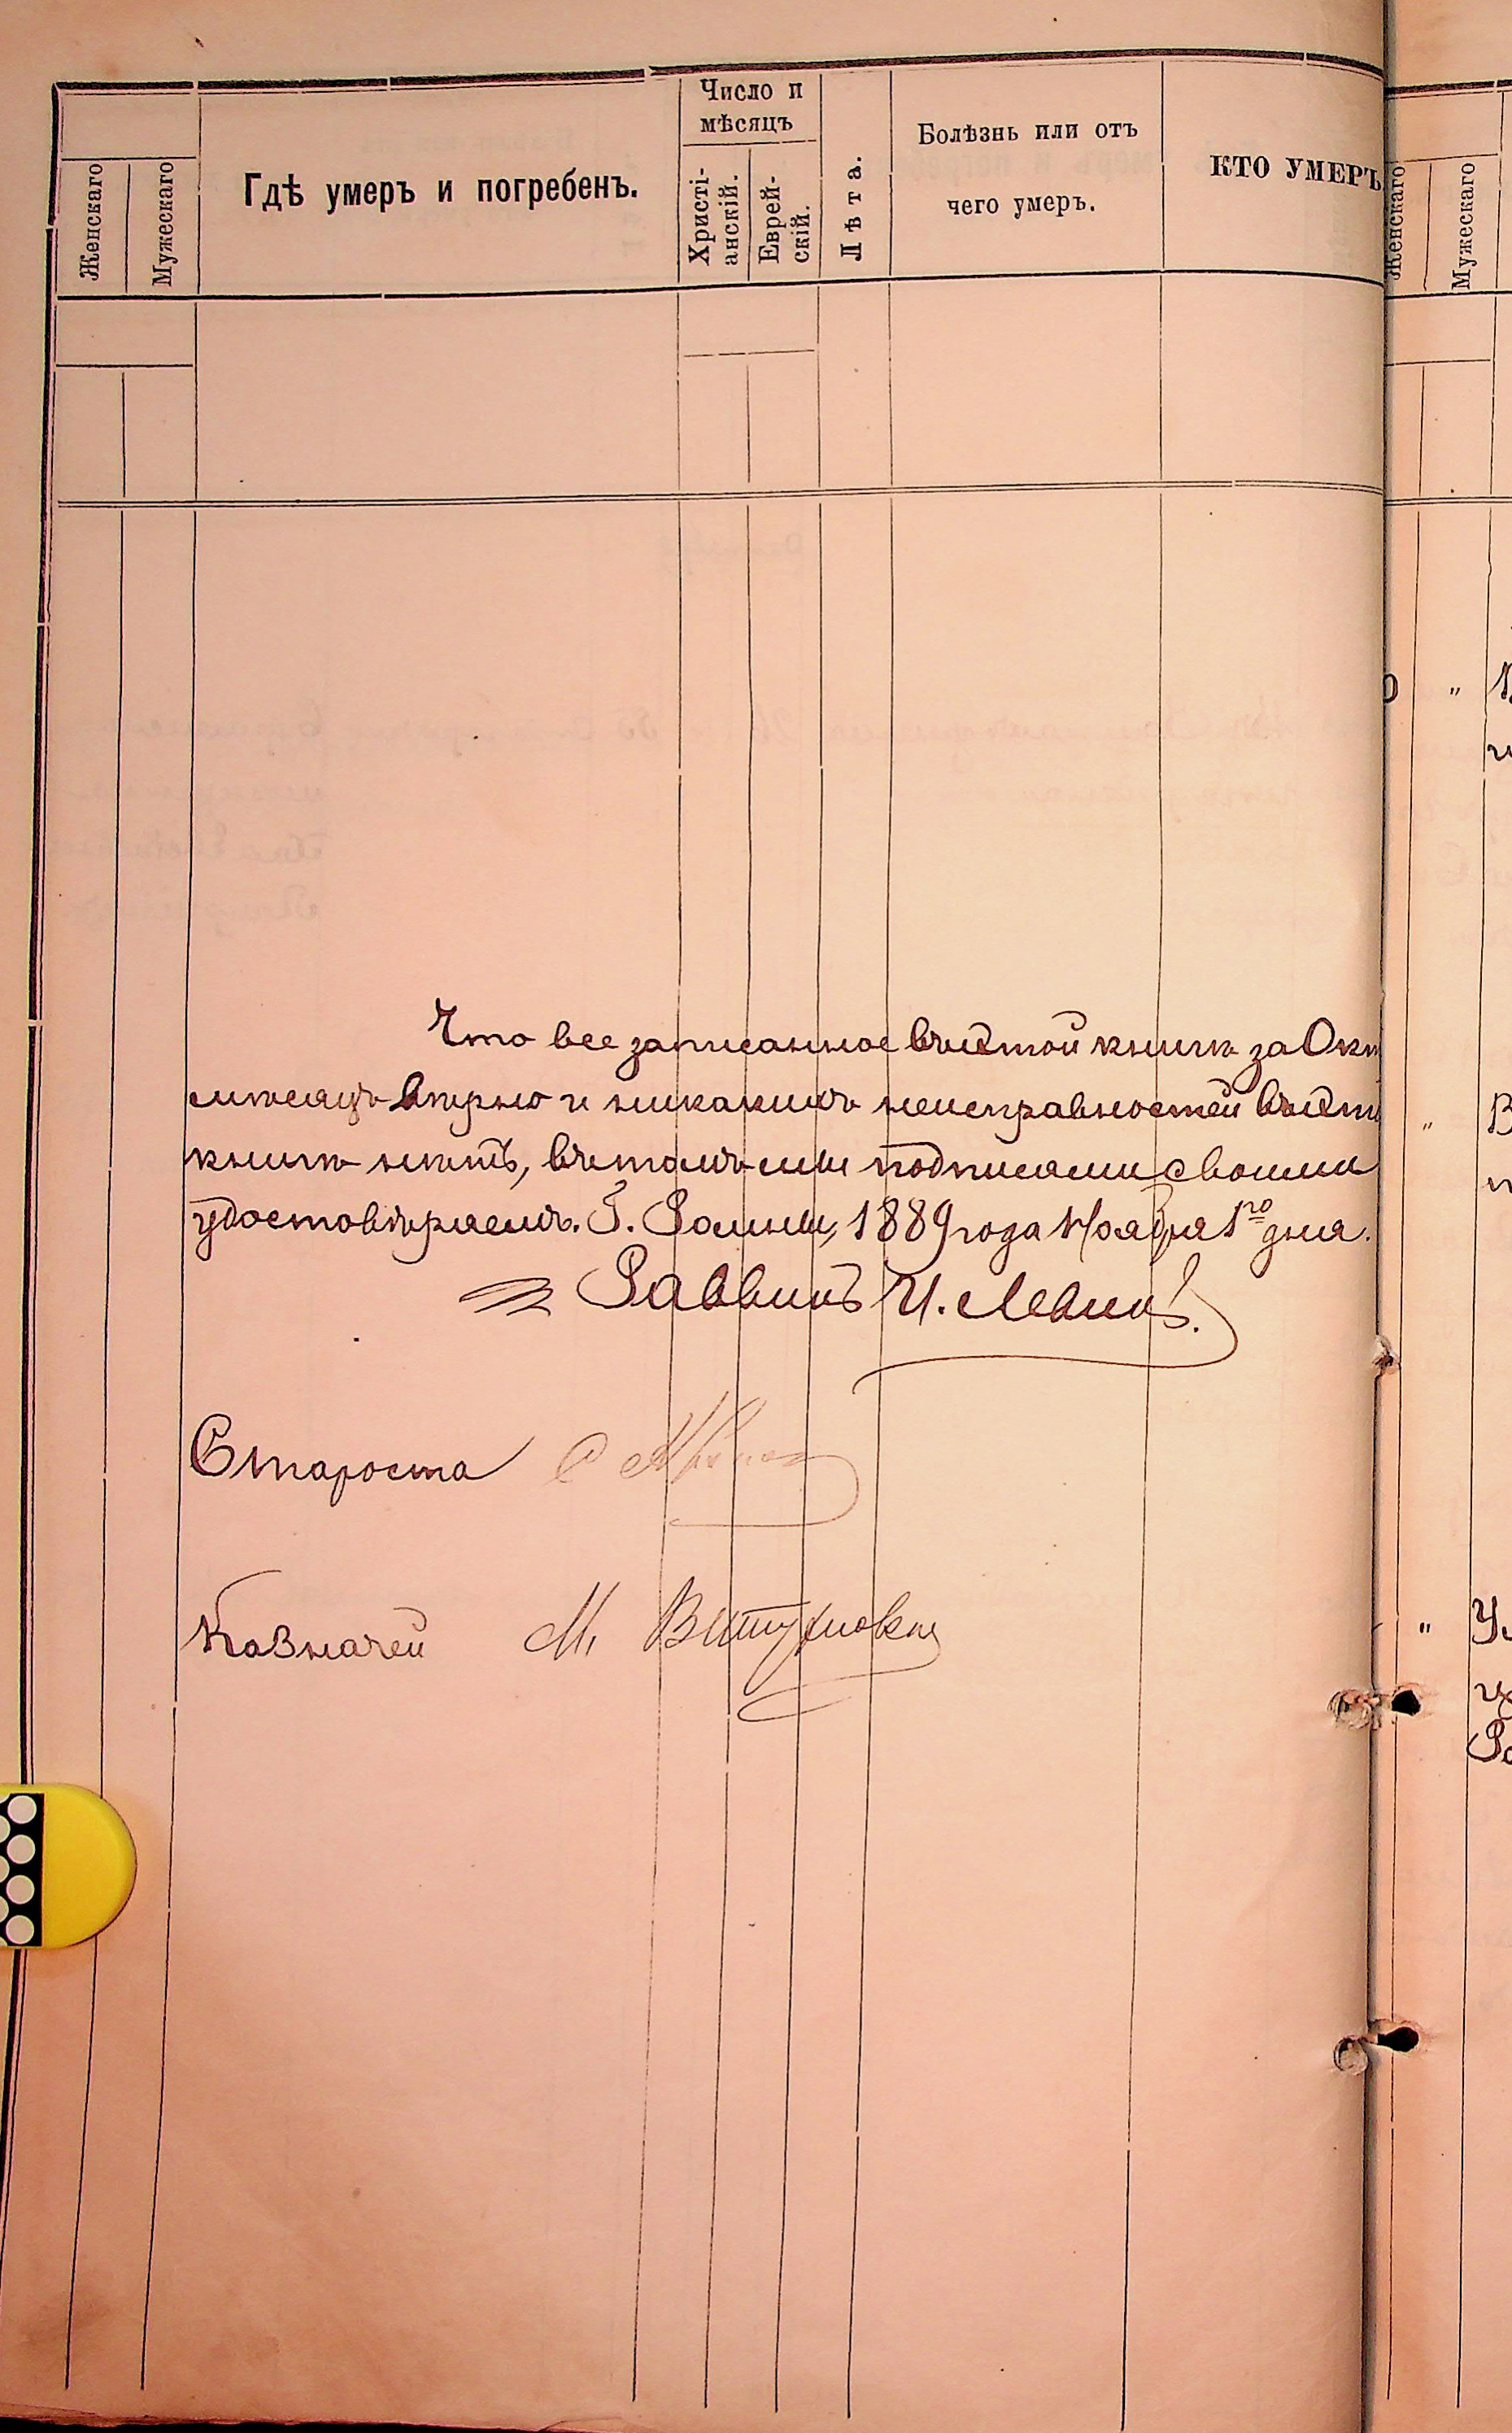 Женскаго
Мужескаго
Гдѣ умеръ и погребенъ.
Число и
мѣсяцъ
Христі-
анскій.
Еврей-
скій.
Лѣта.
Болѣзнь или отъ
чего умеръ.
КТО УМЕРЪ
Женскаго
Мужескаго
Что все записанное въ этой книгѣ за Окт
мѣсяцъ вѣрно и никакихъ неисправностей въ этой
книгѣ нѣтъ, въ томъ мы подписями своими
удостовѣряемъ. Г. Ромны, 1889 года Ноября 1го дня.
Раввинъ И. Левинъ.
Староста
Казначей М.